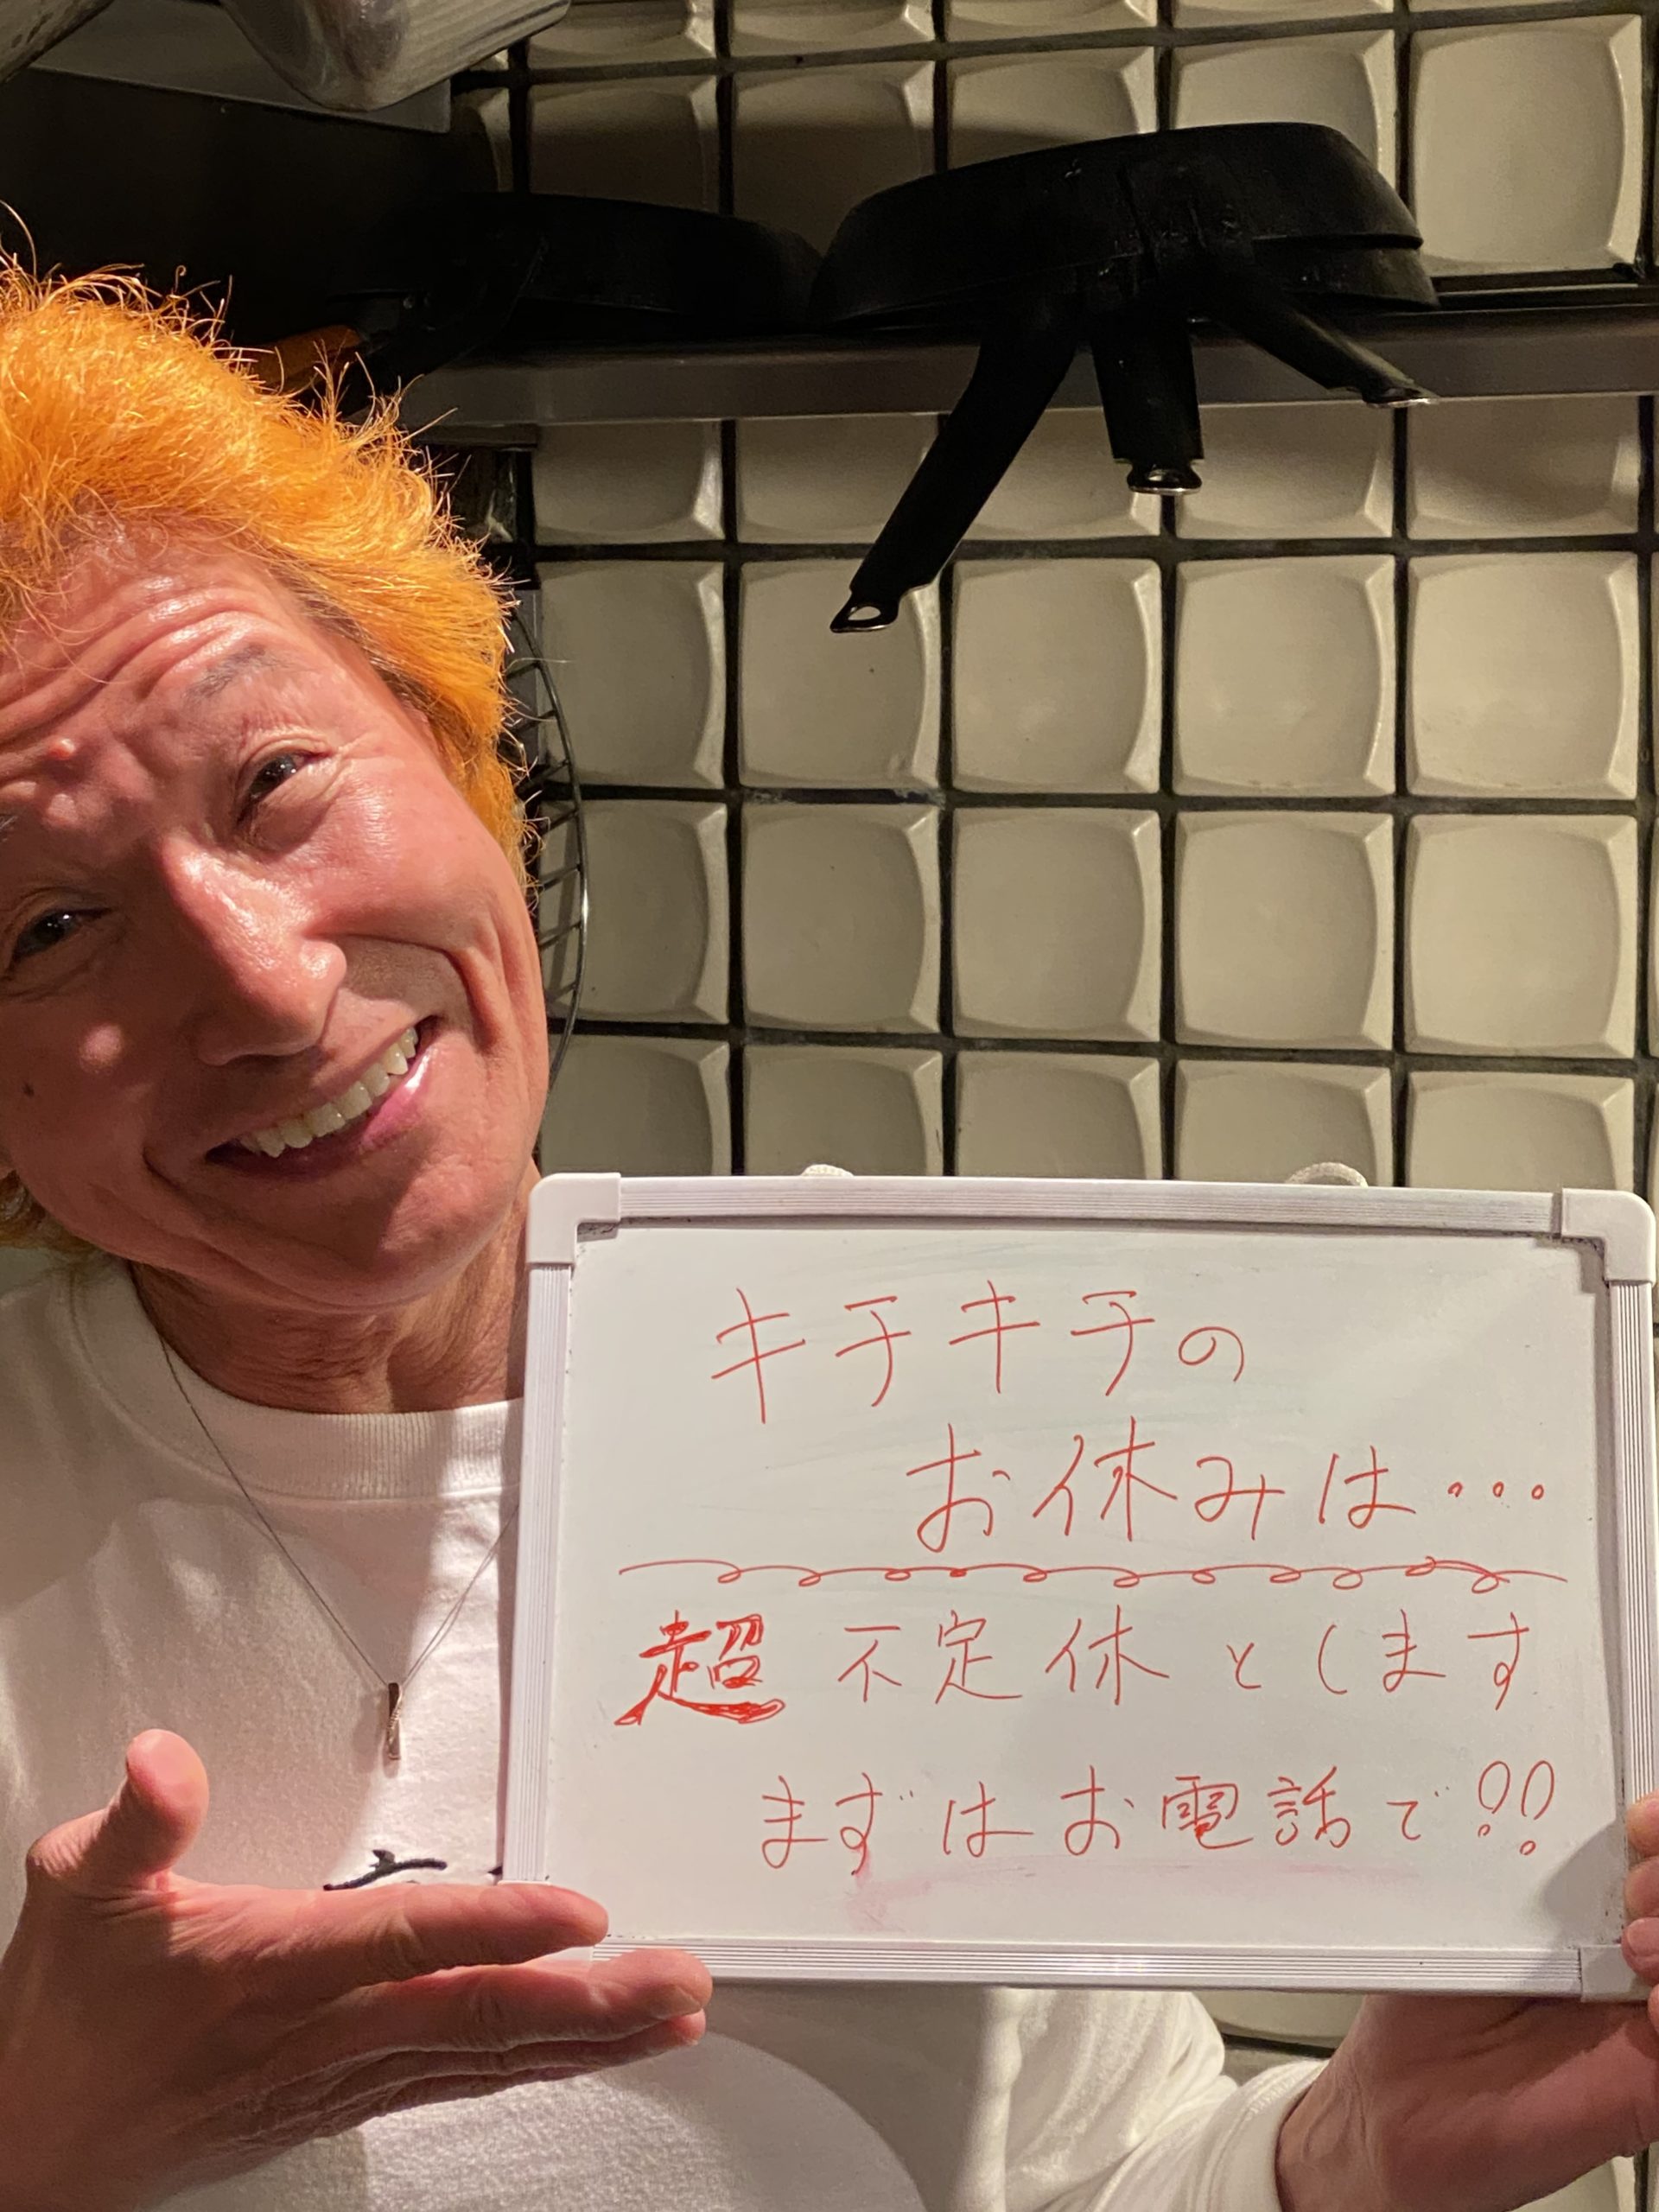 キチキチの
お休みは・・・
超不定休とします
まずはお電話で!!